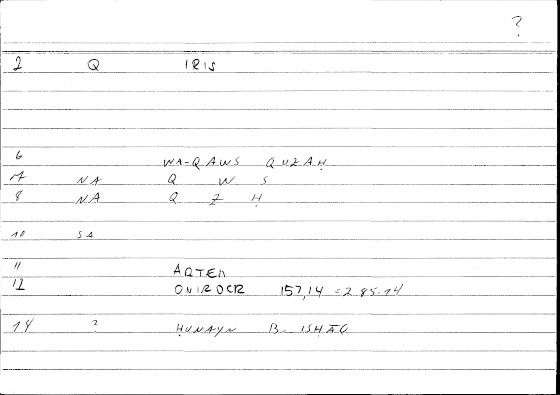 ?
2 Q IRIS
6 WA-QAWS QUZAḤ
7 NA Q W S
8 NA Q Z Ḥ
10 SA
11 ARTEM
12 ONIROCR 157,14 = 2.85.14
14 ? ḤUNAYN B. ISḤĀQ